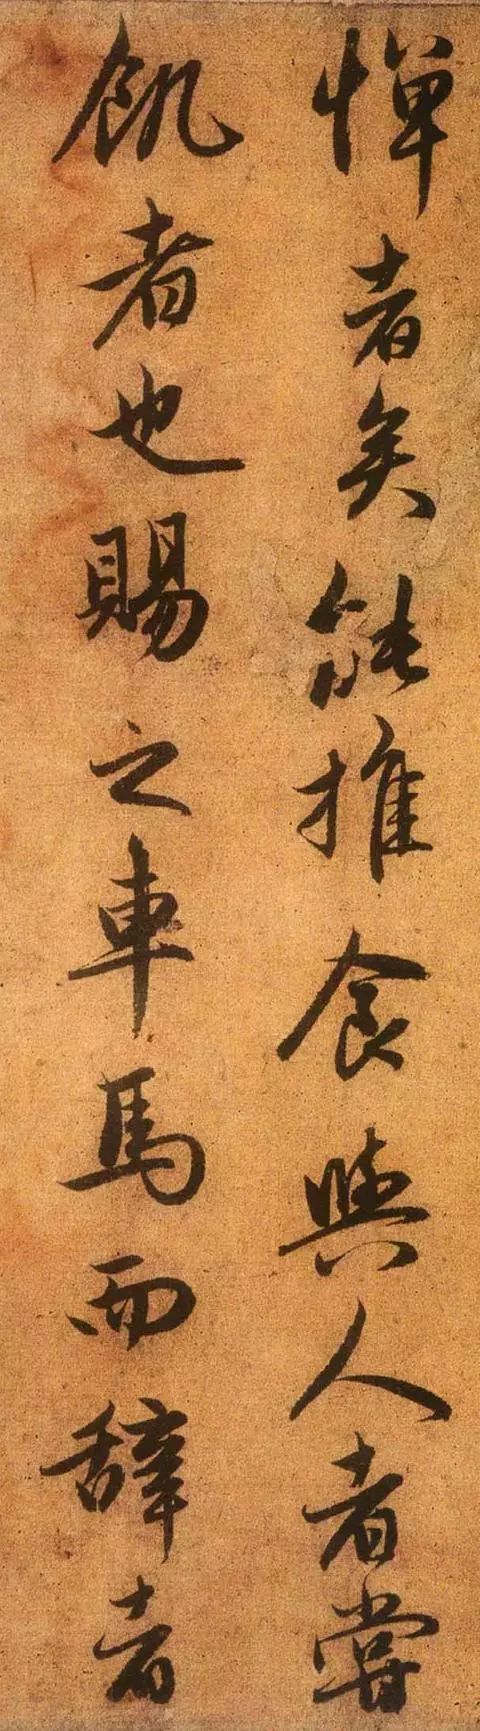 惮者矣能推食與人者甞
飢者也賜之車馬而辞者